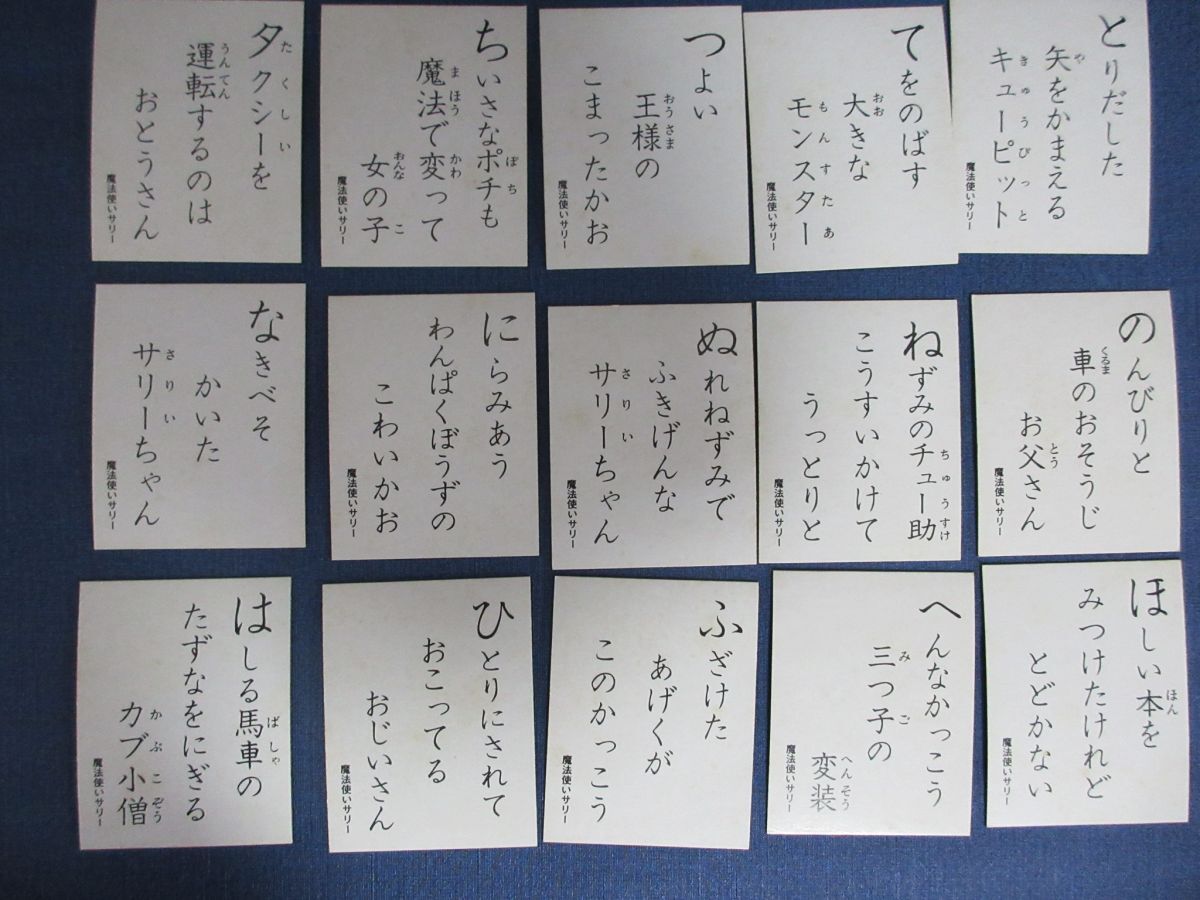 タクシーを
運転するのは
おとうさん
魔法使いサリー
ちいさなポチも
魔法で変って
女の子
魔法使いサリー
つよい
王様の
こまったかお
魔法使いサリー
てをのばす
大きな
モンスター
魔法使いサリー
とりだした
矢をかまえる
キューピット
魔法使いサリー
なきべそ
かいた
サリーちゃん
魔法使いサリー
にらみあう
わんぱくぼうずの
こわいかお
魔法使いサリー
ぬれねずみで
ふきげんな
サリーちゃん
魔法使いサリー
ねずみのチュー助
こうすいかけて
うっとりと
魔法使いサリー
のんびりと
車のおそうじ
お父さん
魔法使いサリー
はしる馬車の
たずなをにぎる
カブ小僧
魔法使いサリー
ひとりにされて
おこってる
おじいさん
魔法使いサリー
ふざけた
あげくが
このかっこう
魔法使いサリー
へんなかっこう
三つ子の
変装
魔法使いサリー
ほしい本を
みつけたけれど
とどかない
魔法使いサリー